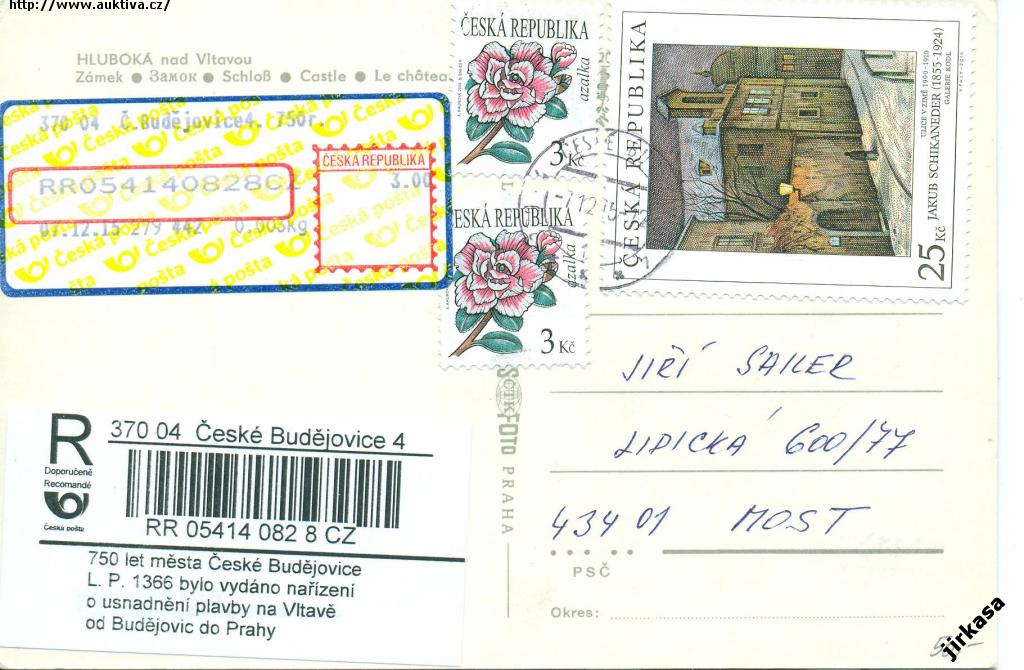 http://www.auktiva.cz/
HLUBOKÁ nad Vltavou
Zámek ● Замок ● Schloß ● Castle ● Le château
370 04 Č.Budějovice4. 750r.
RR054140828CZ
07.12.15 279 442 0.003Kg
ČESKÁ REPUBLIKA
3.00
Česká pošta
ČESKÁ REPUBLIKA
azalka
3 Kč
ČESKÁ REPUBLIKA
azalka
3 Kč
ČESKÁ REPUBLIKA
25 Kč JAKUB SCHIKANEDER (1855-1924)
ULICE V ZIMĚ 1900-1910
GALERIE KODL
ČESKÉ
-7.12.15
1
R
Doporučeně
Recomandé
Česká pošta
370 04 České Budějovice 4
RR 05414 082 8 CZ
750 let města České Budějovice
L. P. 1366 bylo vydáno nařízení
o usnadnění plavby na Vltavě
od Budějovic do Prahy
ČTK
FOTO PRAHA
JIŘÍ SAILER
LIPICKÁ 600/77
434 01 MOST
PSČ
Okres:
jirkasa